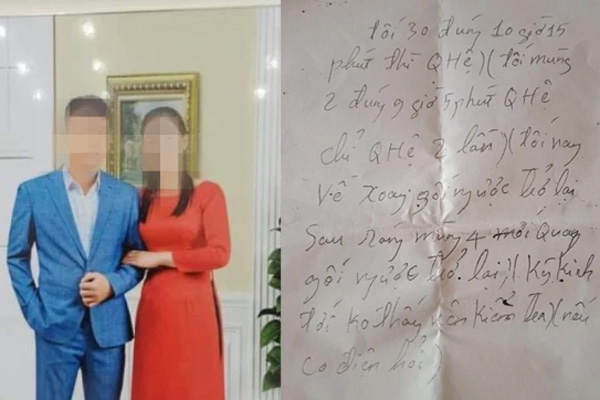 tối 30 đúng 10 giờ 15
phút thì QHệ)( tối mùng
2 đúng 9 giờ 5 phút QHệ
chỉ QHệ 2 lần)( tối nay
về xoay gối ngược trở lại
sau sáng mùng 4 mới quay
gối ngược trở lại)( Kỳ Kinh
tới ko thấy nên kiểm tra)( nếu
có điện hỏi)